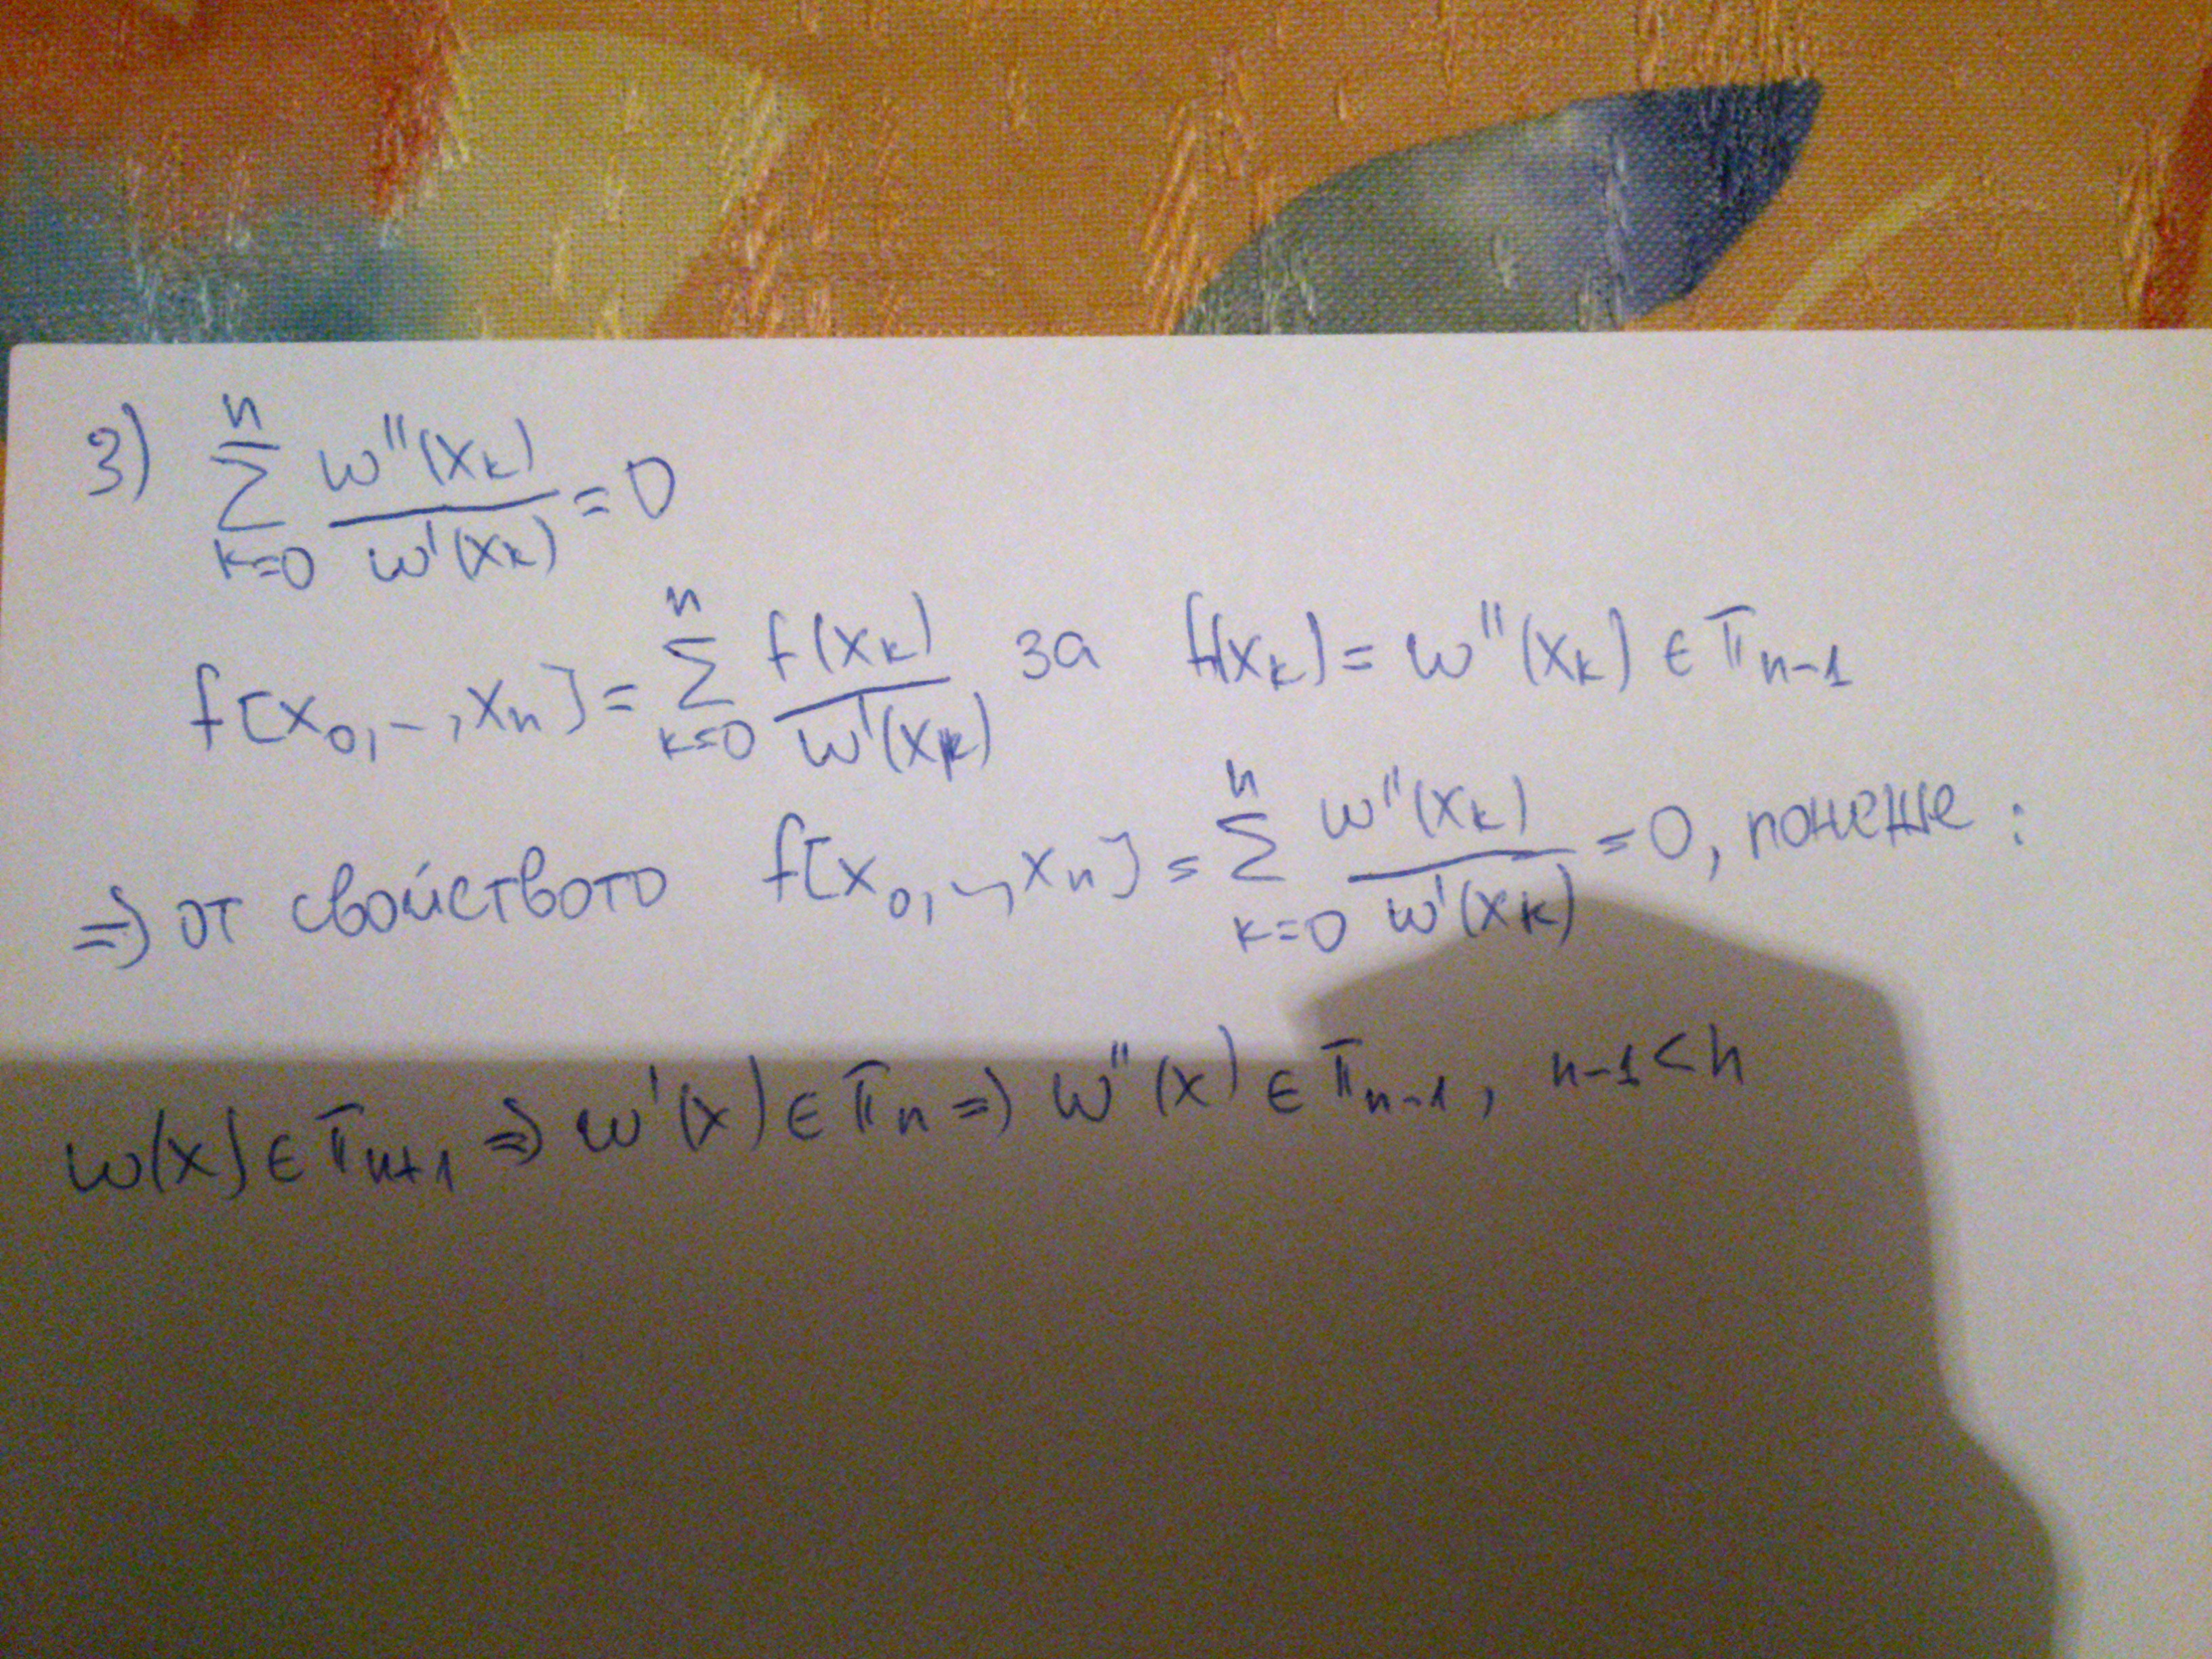 3) \sum_{k=0}^{n} \frac{ω''(x_k)}{ω'(x_k)} = 0
f[x_0,-,x_n] = \sum_{k=0}^{n} \frac{f(x_k)}{ω'(x_k)} за f(x_k) = ω''(x_k) ∈ π_{n-1}
=> от свойството f[x_0,-,x_n] = \sum_{k=0}^{n} \frac{ω''(x_k)}{ω'(x_k)} = 0, понеже :
ω(x) ∈ π_{n+1} => ω'(x) ∈ π_n => ω''(x) ∈ π_{n-1}, n-1 < n